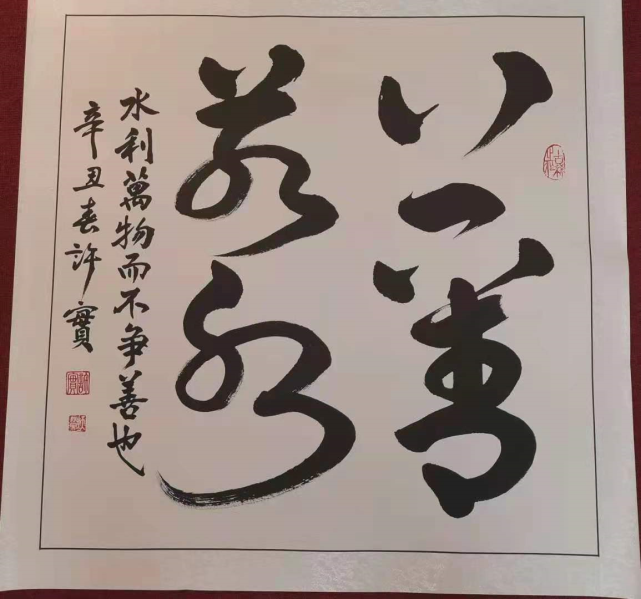 上善
若水
水利萬物而不争善也
辛丑春許實